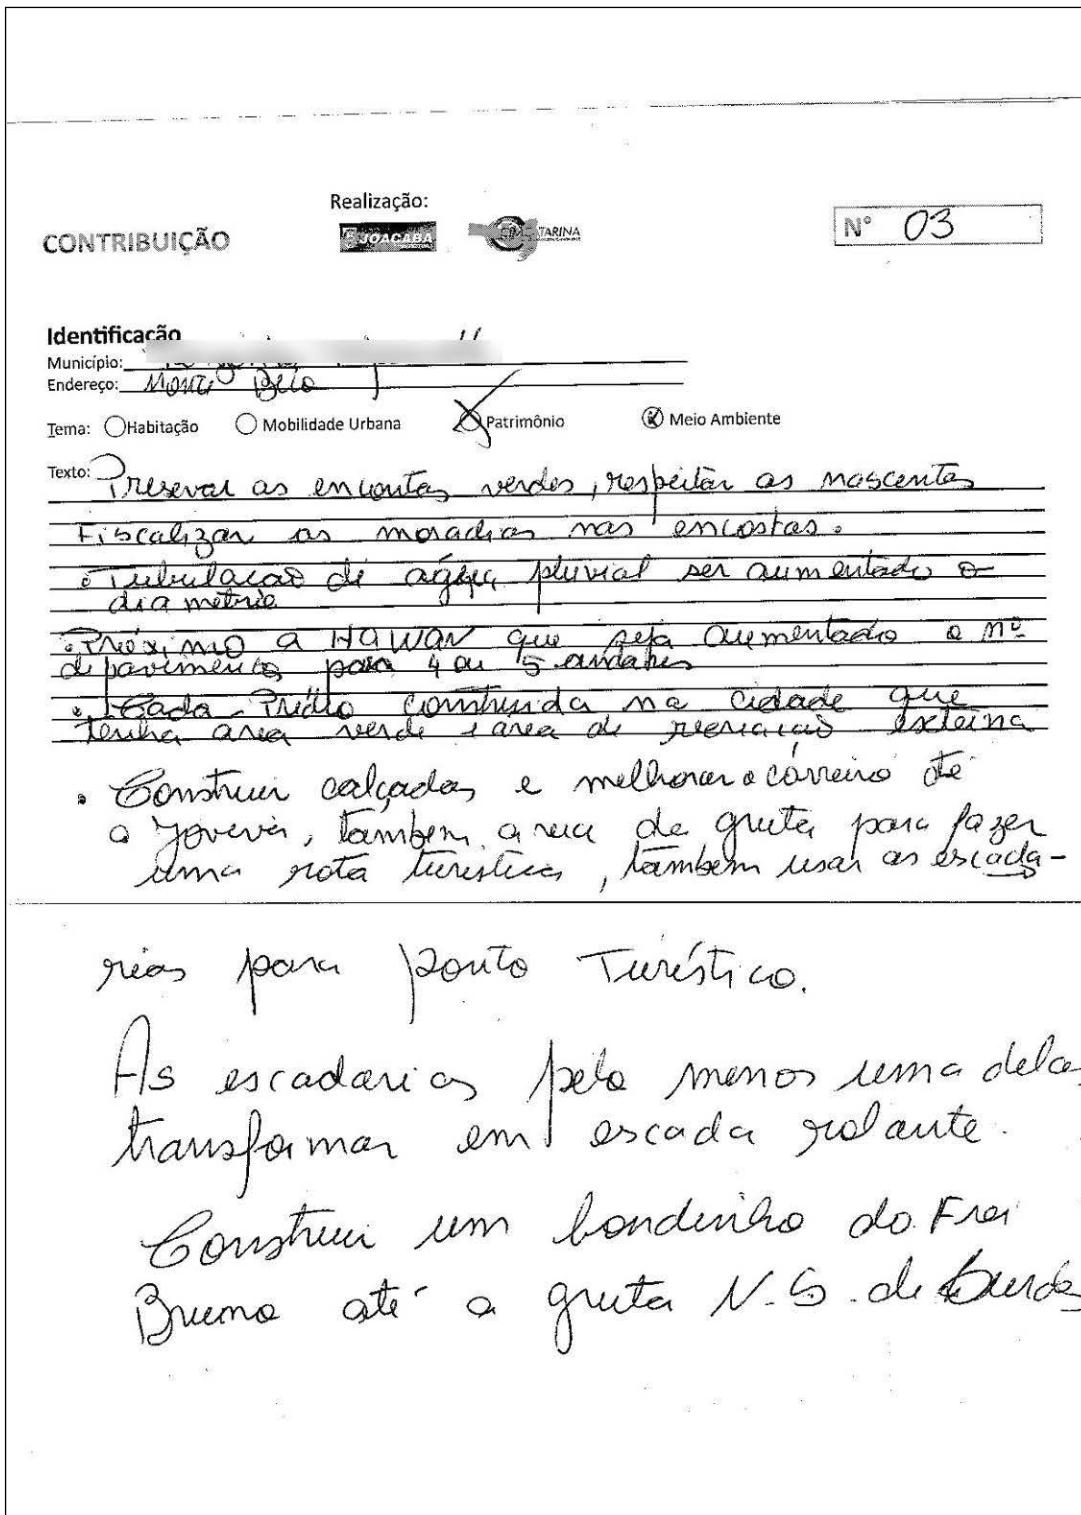 Realização:
CONTRIBUIÇÃO
JOAÇABA
TARINA
N° 03
Identificação
Município:
Endereço: Monte Belo
Tema: Habitação Mobilidade Urbana Patrimônio Meio Ambiente
Texto: Preservar as encontas verdes, respeitar as nascentes
Fiscalizar as moradias nas encostas.
Tubulacao de água pluvial ser aumentado o
diametrio
Próximo a HAWAN que seja aumentado o nº
de pavimentos para 4 ou 5 andares
Cada Prédio construida na cidade que
tenha area verde e area de recriação externa
• Construir calçadas e melhorar o carreiro até
a , também a rua da gruta para fazer
uma rota turistica, também usar as escada-
rias para ponto Turístico.
As escadarias pelo menos uma delas
transformar em escada rolante.
Construir um bondinho do Frei
Bruno até a gruta N.S. de Lurdes